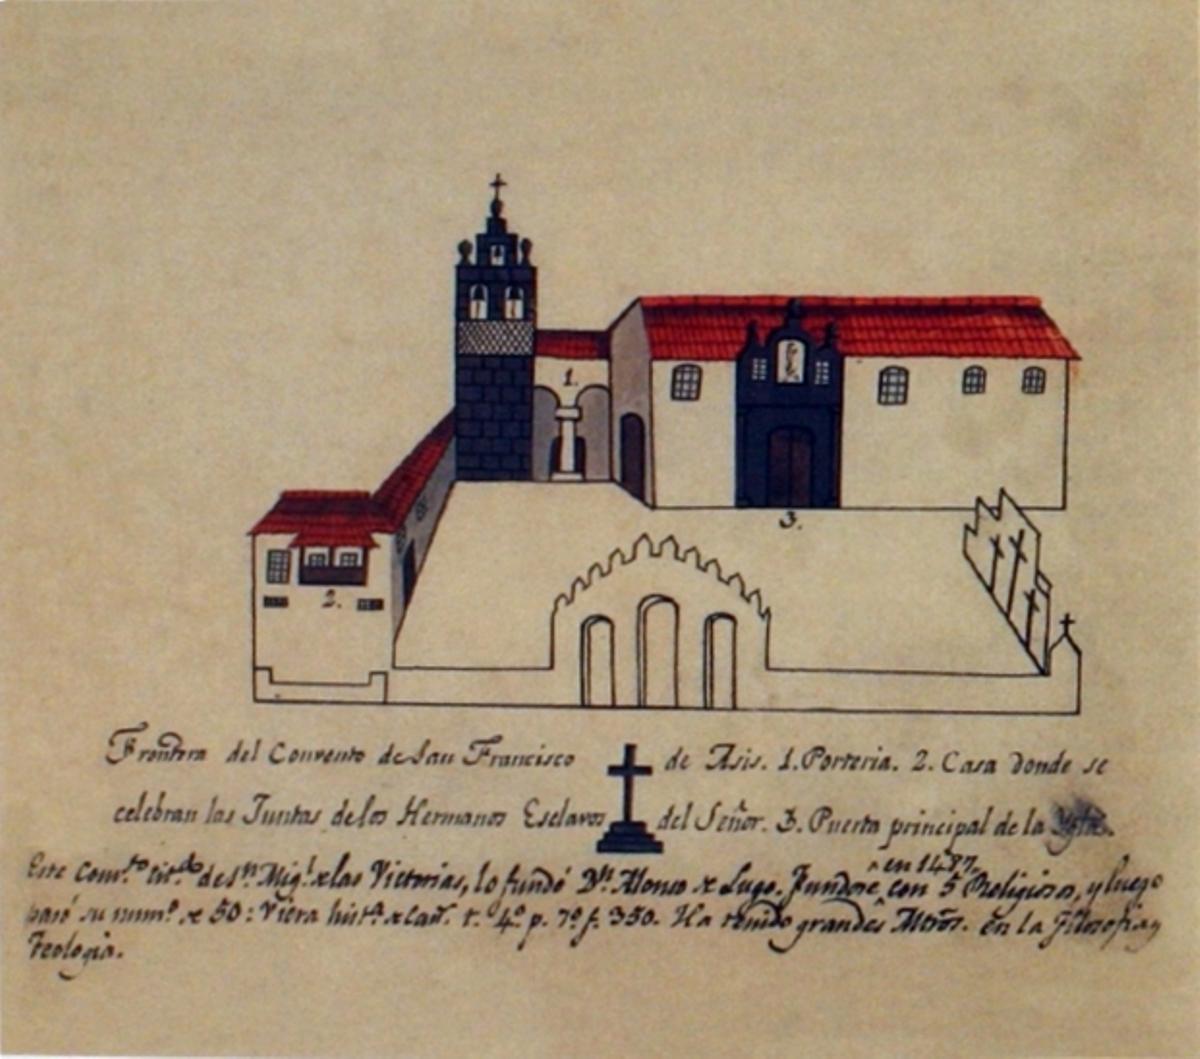 1.
2.
3.
Frontera del Convento de San Francisco de Asis. 1. Porteria. 2. Casa donde se
celebran las Juntas de los Hermanos Esclavos del Señor. 3. Puerta principal de la Yglª.
Este Comv.to tit.do de Sn. Mig.l de las Victorias, lo fundó Dn. Alonso de Lugo. Fundose ^ en 1487. con 5 Religiosos, y luego
pasó su num.o de 50: Viera hist.a de Can. t. 4.o p. 7.o f. 350. Ha tenido grandes Mtros. en la Filosofia y
Teologia.